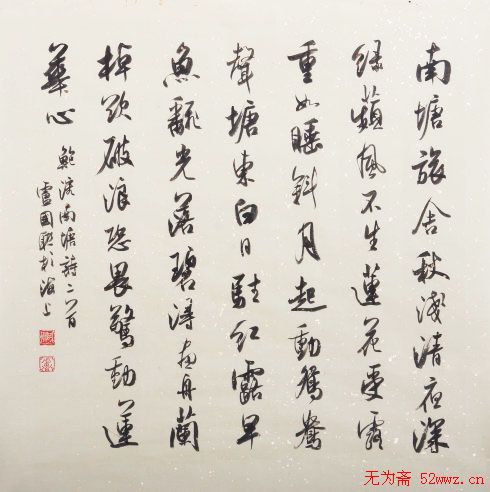 南塘旅舍秋淺清夜深
綠蘋風不生蓮花受露
重如睡斜月起動鴛鴦
聲塘東白日駐紅露早
魚翻光落碧潯畫舟蘭
棹欲破浪恐畏驚動蓮
華心
鮑溶南塘詩二首
盧國聯於海上
无为斋 52wwz.cn